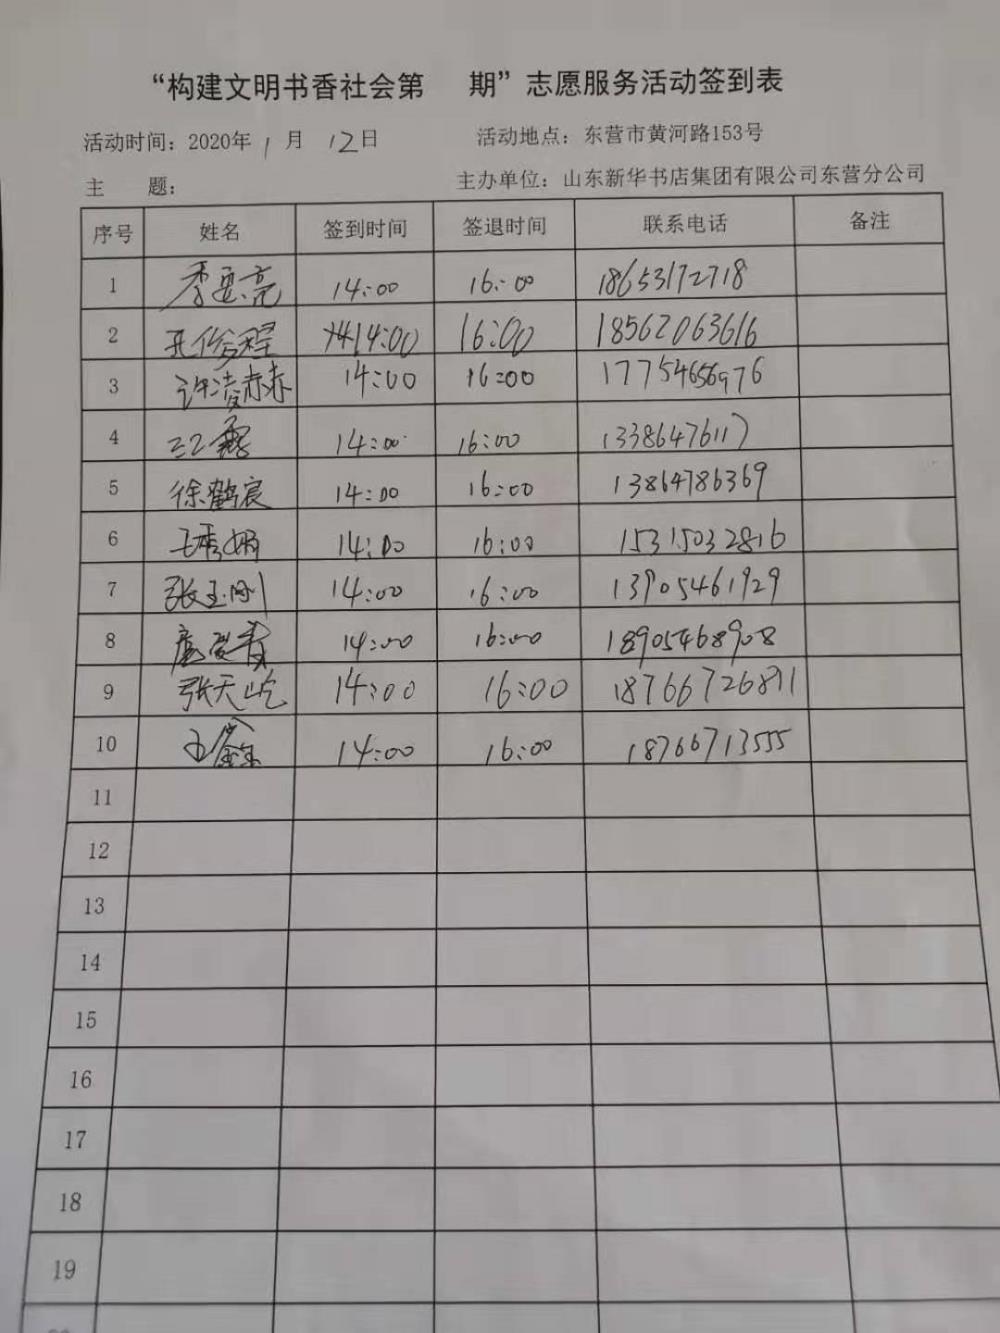 “构建文明书香社会第 期”志愿服务活动签到表
活动时间：2020年 1 月 12日 活动地点：东营市黄河路153号
主 题： 主办单位：山东新华书店集团有限公司东营分公司
序号 姓名 签到时间 签退时间 联系电话 备注
1 14:00 16:00 18653172718
2 14:00 16:00 18562063616
3 许凌赤赤 14:00 16:00 17754656976
4 14:00 16:00 13386476117
5 徐鹤宸 14:00 16:00 13864786369
6 王秀娟 14:00 16:00 15315032816
7 张玉刚 14:00 16:00 13905461929
8 14:00 16:00 18905468908
9 张天屹 14:00 16:00 18766726811
10 王鑫 14:00 16:00 18766713555
11
12
13
14
15
16
17
18
19